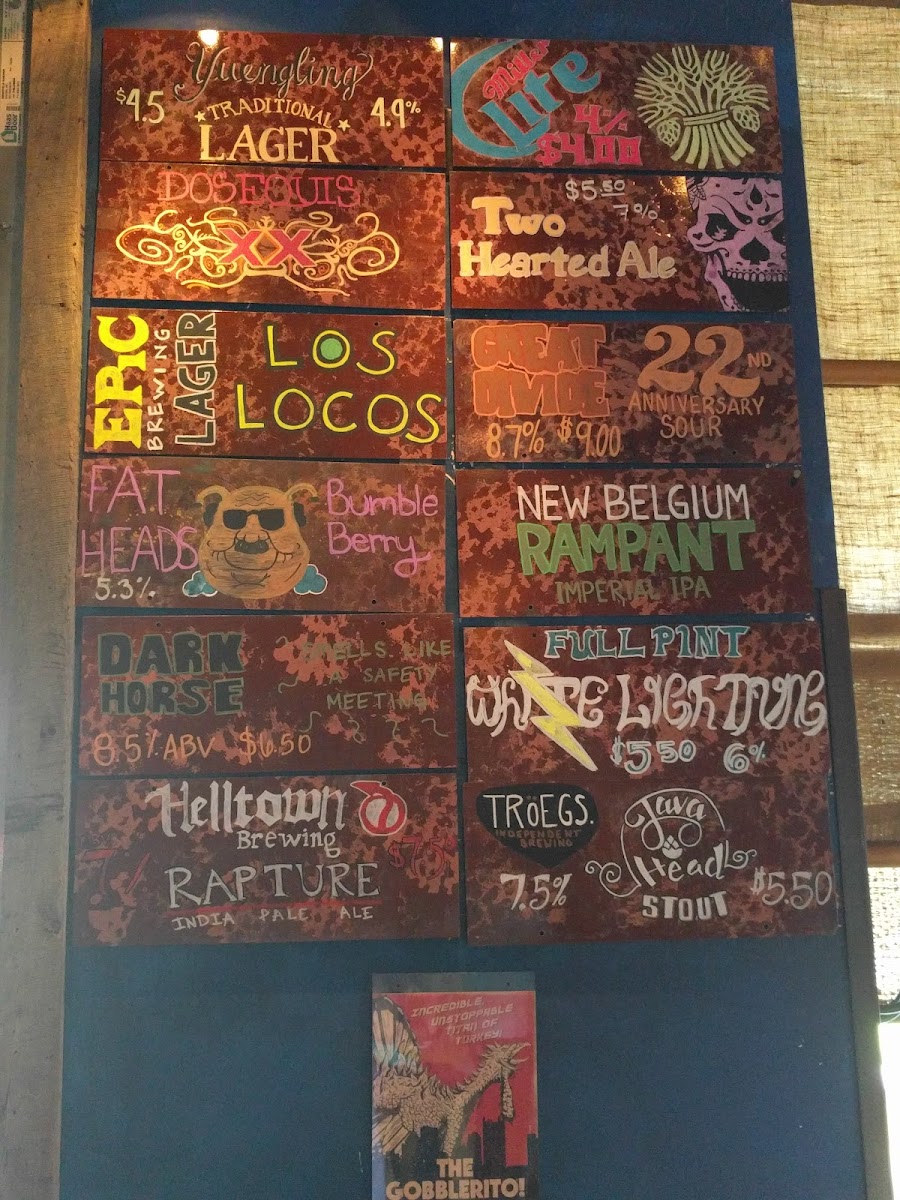 Yuengling
$4.5
★TRADITIONAL★
4.9%
LAGER
Miller
Lite
4%
$4.00
DOS EQUIS
XX
$5.50
7%
Two
Hearted Ale
EPiC
BREWING
LAGER
LOS
LOCOS
GREAT
DIVIDE
8.7% $9.00
22ND
ANNIVERSARY
SOUR
FAT
HEADS
5.3%
Bumble
Berry
NEW BELGIUM
RAMPANT
IMPERIAL IPA
DARK
HORSE
8.5% ABV $6.50
SMELLS LIKE
A SAFETY
MEETING
FULL PINT
WHITE LIGHTNING
$5.50 6%
Helltown
Brewing
7%
RAPTURE
INDIA PALE ALE
TRöEGS.
INDEPENDENT
BREWING
7.5%
Java
Head
STOUT
$5.50
INCREDIBLE,
UNSTOPPABLE
TITAN OF
TURKEY!
THE
GOBBLERITO!